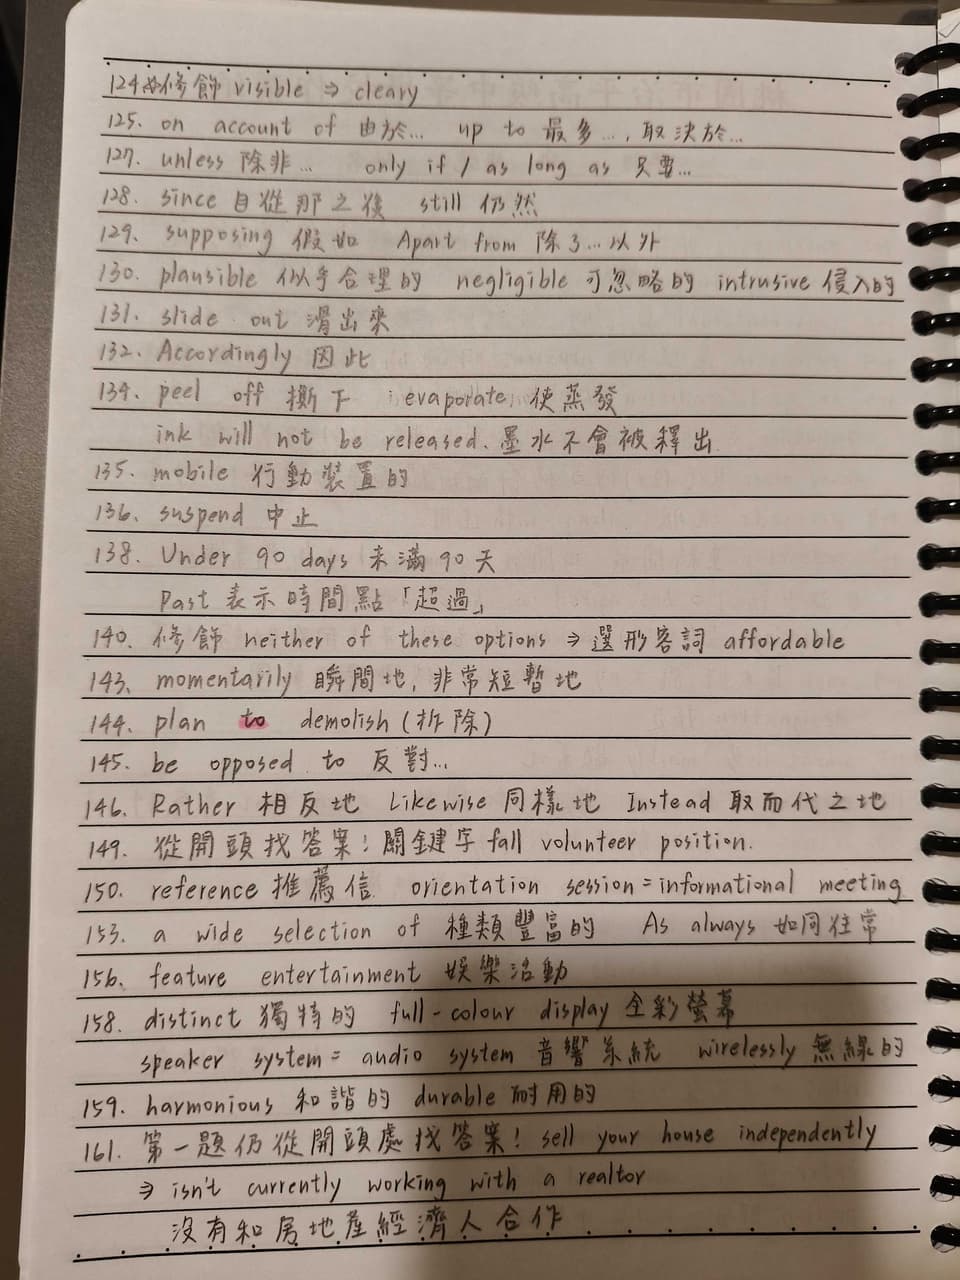 124. 修飾 visible ⇒ cleary
125. on account of 由於... up to 最多..., 取決於...
127. unless 除非... only if / as long as 只要...
128. since 自從那之後 still 仍然
129. supposing 假如 Apart from 除了...以外
130. plausible 似乎合理的 negligible 可忽略的 intrusive 侵入的
131. slide out 滑出來
132. Accordingly 因此
134. peel off 撕下 evaporate 使蒸發
ink will not be released. 墨水不會被釋出
135. mobile 行動裝置的
136. suspend 中止
138. Under 90 days 未滿90天
Past 表示時間點「超過」
140. 修飾 neither of these options ⇒ 選形容詞 affordable
143. momentarily 瞬間地, 非常短暫地
144. plan to demolish (拆除)
145. be opposed to 反對...
146. Rather 相反地 Likewise 同樣地 Instead 取而代之地
149. 從開頭找答案! 關鍵字 fall volunteer position.
150. reference 推薦信 orientation session = informational meeting
153. a wide selection of 種類豐富的 As always 如同往常
156. feature entertainment 娛樂活動
158. distinct 獨特的 full-colour display 全彩螢幕
speaker system = audio system 音響系統 wirelessly 無線的
159. harmonious 和諧的 durable 耐用的
161. 第一題仍從開頭處找答案! sell your house independently
⇒ isn't currently working with a realtor
沒有和房地產經濟人合作